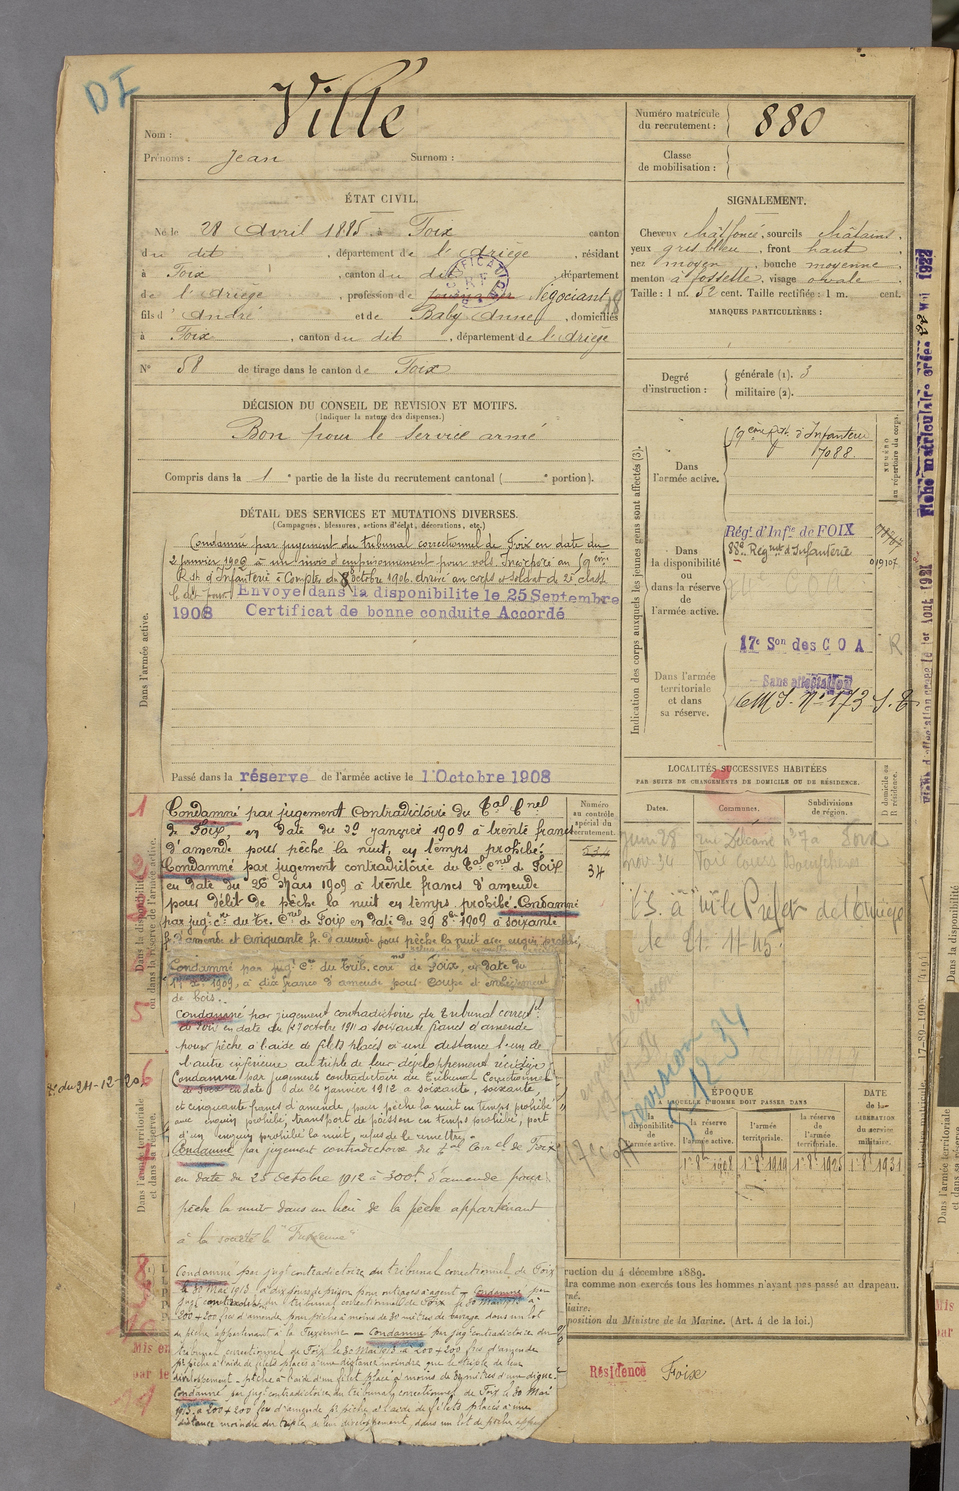 DI
Nom : Ville
Prénoms : Jean Surnom :
Numéro matricule du recrutement : 880
Classe de mobilisation :
ÉTAT CIVIL.
Né le 28 Avril 1885 à Foix canton
du dit, département de l'Ariège, résidant
à Foix, canton du dit, département
de l'Ariège, profession de Négociant
fils d' André et de Baby Anne, domiciliés
à Foix, canton du dit, département de l'Ariège
N° 58 de tirage dans le canton de Foix
SIGNALEMENT.
Cheveux chât foncé, sourcils châtains,
yeux gris bleu, front haut
nez moyen, bouche moyenne
menton à fossette, visage ovale
Taille : 1 m. 52 cent. Taille rectifiée : 1 m. cent.
MARQUES PARTICULIÈRES :
Degré d'instruction : générale (1). 3
militaire (2).
DÉCISION DU CONSEIL DE REVISION ET MOTIFS.
(Indiquer la nature des dispenses.)
Bon pour le service armé
Compris dans la 1e partie de la liste du recrutement cantonal ( e portion).
DÉTAIL DES SERVICES ET MUTATIONS DIVERSES.
(Campagnes, blessures, actions d'éclat, décorations, etc.)
Condamné par jugement du tribunal correctionnel de Foix en date du
2 janvier 1902 à un mois d'emprisonnement pour vols. Incorporé au
d'Infanterie à Compter du 8 octobre 1906, arrivé au corps et soldat de 2e classe
le dit jour. Envoyé dans la disponibilité le 25 Septembre
1908 Certificat de bonne conduite Accordé
Dans l'armée active.
Passé dans la réserve de l'armée active le 1 Octobre 1908
Indication des corps auxquels les jeunes gens sont affectés (3).
Dans l'armée active.
d'Infanterie
7088.
Dans la disponibilité ou dans la réserve de l'armée active.
Régt d'Infie de FOIX
Régiment d'Infanterie
17e Son des C O A
R
Dans l'armée territoriale et dans sa réserve.
Sans affectation
NUMÉRO au répertoire du corps.
LOCALITÉS SUCCESSIVES HABITÉES
PAR SUITE DE CHANGEMENTS DE DOMICILE OU DE RÉSIDENCE.
Dates. Communes. Subdivisions de région. D domicile ou R résidence.
Foix
le 21.11.45
Numéro au contrôle spécial du recrutement.
34
Condamné par jugement contradictoire du Tal Cnel
de Foix, en date du 30 janvier 1909 à trente francs
d'amende pour pêche la nuit, en temps prohibé.
Condamné par jugement contradictoire du Tal Cnel de Foix
en date du 26 Mars 1909 à trente francs d'amende
pour délit de pêche la nuit en temps prohibé. Condamné
par jugt cre du Tr. Cnel de Foix en date du 29 8bre 1909 à soixante
f. d'amende et cinquante fr. d'amende pour pêche la nuit avec engin prohibé,
Condamné par jugt cre du Trib. corrnel de Foix, en date du
1909, à dix francs d'amende pour coupe et enlèvement
de bois.
Condamné par jugement contradictoire du Tribunal correctel
de Foix en date du 27 octobre 1911 à soixante francs d'amende
pour pêche à l'aide de filets placés à une distance l'un de
l'autre inférieure au triple de leur développement
Condamné par jugement contradictoire du Tribunal Correctionnel
de Foix en date du 24 janvier 1912 à soixante, soixante,
et cinquante francs d'amende, pour pêche la nuit en temps prohibé
avec engin prohibé, transport de poisson en temps prohibé, port
d'un engin prohibé la nuit, refus de le remettre.
Condamné par jugement contradictoire du Tal Correl de Foix
en date du 25 octobre 1912 à 300f. d'amende pour
pêche la nuit dans un lieu de la pêche appartenant
à la société la "Fuxéenne"
Condamné par jugt contradictoire du tribunal correctionnel de Foix
le 30 Mai 1913 à dix jours de prison pour outrages à agent - Condamné par
jugt contradictoire du tribunal correctionnel de Foix le 30 Mai 1913 à
200 + 200 frs d'amende pour pêche à moins de 30 mètres de barrage dans un lot
de pêche appartenant à la Fuxéenne - Condamné par jugt contradictoire du
tribunal correctionnel de Foix le 30 Mai 1913 à 200 + 200 frs d'amende
pr pêche à l'aide de filets placés à une distance moindre que le triple de leur
développement - pêche à l'aide d'un filet placé à moins de 30 mètres d'une digue.
Condamné par jugt contradictoire du tribunal correctionnel de Foix le 30 Mai
1913 à 200 + 200 frs d'amende pr pêche à l'aide de filets placés à une
distance moindre du triple de leur développement, dans un lot de pêche
5-12-34
ÉPOQUE
À LAQUELLE L'HOMME DOIT PASSER DANS
la disponibilité de l'armée active. la réserve de l'armée active. l'armée territoriale. la réserve de l'armée territoriale.
DATE de la LIBÉRATION du service militaire.
1r 8bre 1908 1r 8bre 1919 1r 8bre 1925 1r 8bre 1931
ruction du 4 décembre 1889.
dra comme non-exercés tous les hommes n'ayant pas passé au drapeau.
position du Ministre de la Marine. (Art. 4 de la loi.)
Résidence Foix
Fiche matriculaire créée